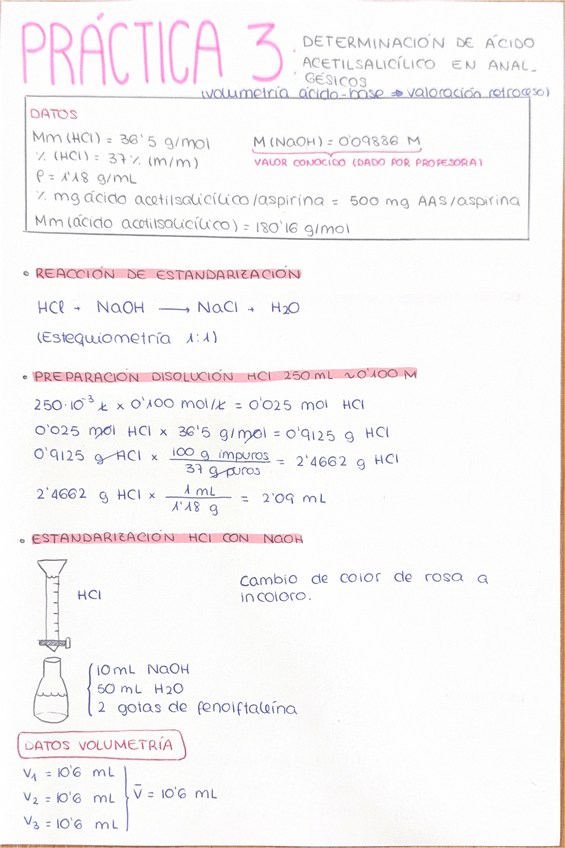 PRÁCTICA 3. DETERMINACIÓN DE ÁCIDO
ACETILSALICÍLICO EN ANAL_
GÉSICOS
(volumetría ácido-base → valoración retroceso)
DATOS
Mm (HCl) = 36'5 g/mol
M (NaOH) = 0'09836 M
% (HCl) = 37% (m/m)
VALOR CONOCIDO (DADO POR PROFESORA)
ρ = 1'18 g/mL
% mg ácido acetilsalicílico/aspirina = 500 mg AAS/aspirina
Mm (ácido acetilsalicílico) = 180'16 g/mol
• REACCIÓN DE ESTANDARIZACIÓN
HCl + NaOH ⟶ NaCl + H2O
(Estequiometría 1:1)
• PREPARACIÓN DISOLUCIÓN HCl 250 mL ~0'100 M
250·10⁻³ L × 0'100 mol/L = 0'025 mol HCl
0'025 mol HCl × 36'5 g/mol = 0'9125 g HCl
0'9125 g HCl × 100 g impuros / 37 g puros = 2'4662 g HCl
2'4662 g HCl × 1 mL / 1'18 g = 2'09 mL
• ESTANDARIZACIÓN HCl CON NaOH
HCl
Cambio de color de rosa a
incoloro.
10 mL NaOH
50 mL H2O
2 gotas de fenolftaleína
DATOS VOLUMETRÍA
V1 = 10'6 mL
V2 = 10'6 mL
V̄ = 10'6 mL
V3 = 10'6 mL